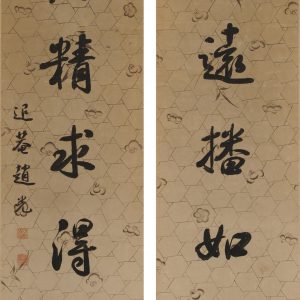 遠播如
精求得
退菴趙光